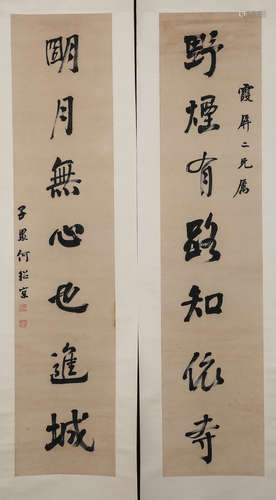 霞屏二兄属
野煙有路知依寺
明月無心也進城
子毅何紹京